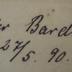 Bard
27/5. 90.